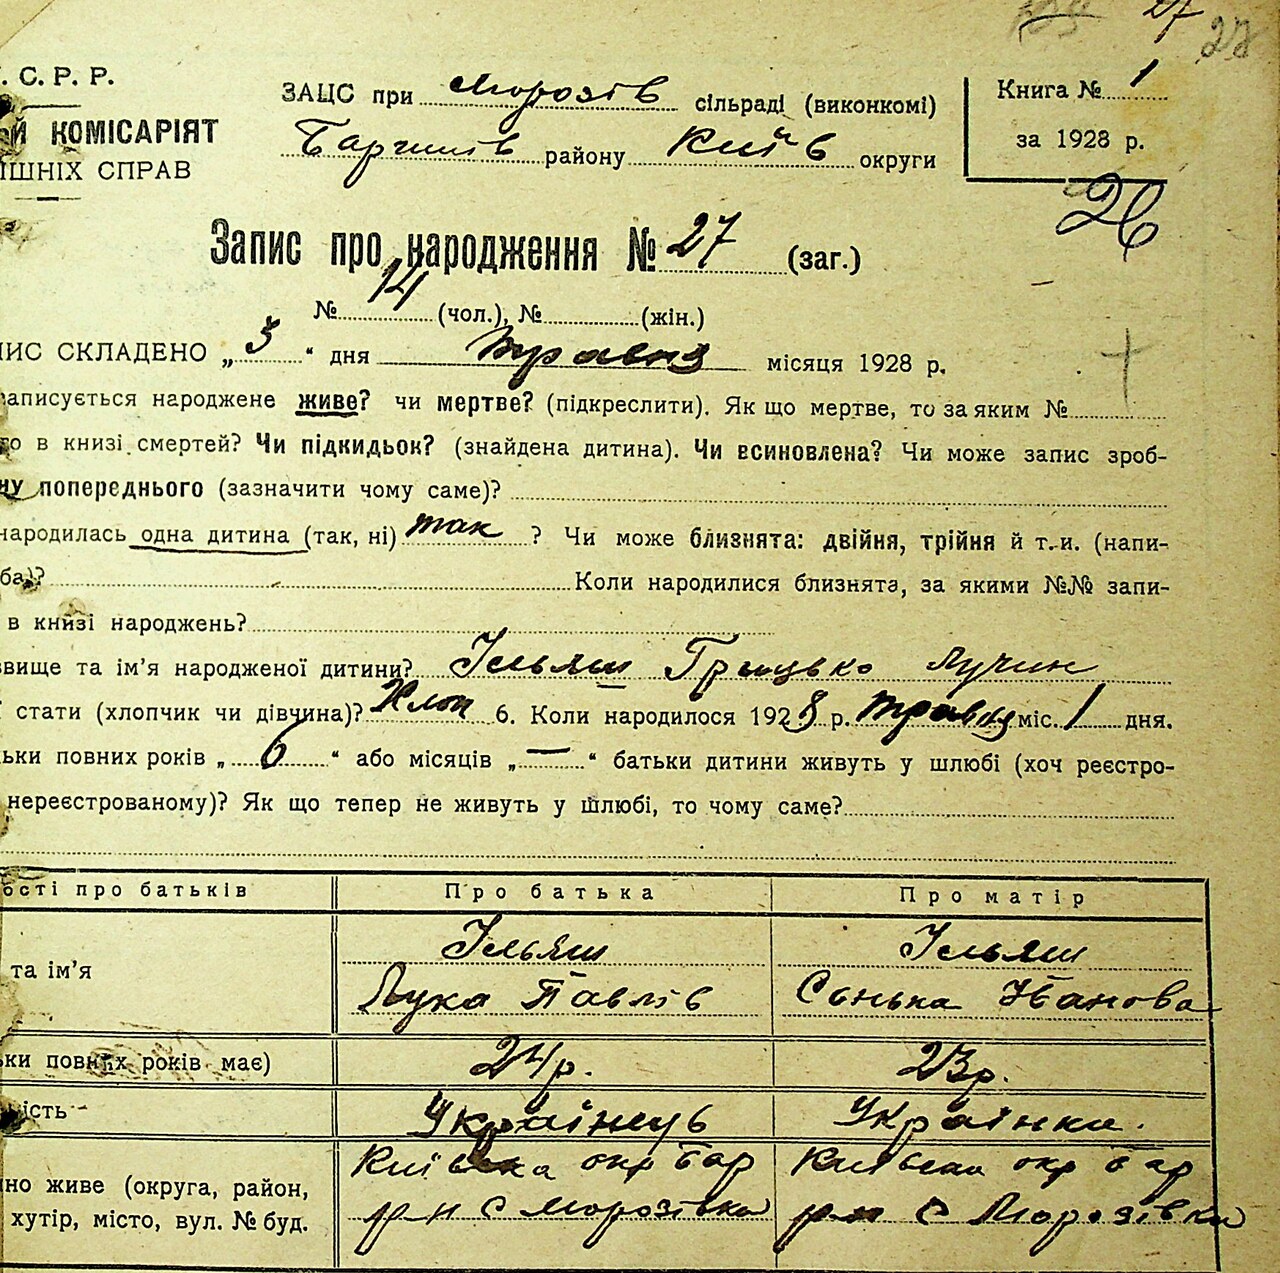 27 27
. С. Р. Р.
ЗАЦС при Морозів сільраді (виконкомі)
Книга № 1
Й КОМІСАРІЯТ
Баришів району Київ округи
за 1928 р.
ІШНІХ СПРАВ
26
Запис про народження № 27 (заг.)
№ 14 (чол.), № (жін.)
ИС СКЛАДЕНО „3“ дня травня місяця 1928 р.
аписується народжене живе? чи мертве? (підкреслити). Як що мертве, то за яким №
о в книзі смертей? Чи підкидьок? (знайдена дитина). Чи всиновлена? Чи може запис зроб-
ну попереднього (зазначити чому саме)?
народилась одна дитина (так, ні) так ? Чи може близнята: двійня, трійня й т. и. (напи-
ба)? Коли народилися близнята, за якими №№ запи-
в книзі народжень?
звище та ім’я народженої дитини? Ільяш Грицько Лучин
ї стати (хлопчик чи дівчина)? Хлоп 6. Коли народилося 1928 р. травня міс. 1 дня.
ьки повних років „6“ або місяців „—“ батьки дитини живуть у шлюбі (хоч реєстро-
нереєстрованому)? Як що тепер не живуть у шлюбі, то чому саме?
ості про батьків Про батька Про матір
Ільяш Ільяш
та ім’я
Лука Павлів Сонька Іванова
ьки повних років має) 24 р. 23 р.
ість Українець Українка.
Київська окр Бар Київська окр Бар
но живе (округа, район,
р-н С Морозівка р-н С Морозівка
хутір, місто, вул. № буд.